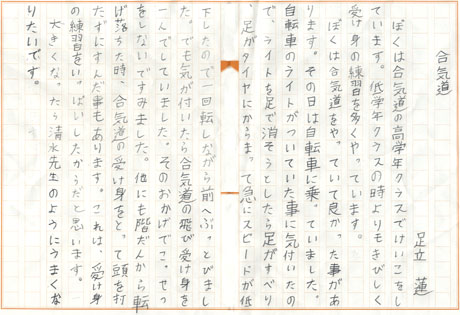 合気道
足立 蓮
ぼくは合気道の高学年クラスでけいこをし
ています。低学年クラスの時よりもきびしく
受け身の練習を多くやっています。
ぼくは合気道をやっていて良かった事があ
ります。その日は自転車に乗っていました。
自転車のライトがついていた事に気付いたの
で、ライトを足で消そうとしたら足がすべり
、足がタイヤにからまって急にスピードが低
下したので一回転しながら前へぶっとびまし
た。でも気が付いたら合気道の飛び受け身を
一人でしていました。そのおかげでこっせつ
をしないですみました。他にも階だんから転
げ落ちた時、合気道の受け身をとって頭を打
たずにすんだ事もあります。これは、受け身
の練習をいっぱいしたからだと思います。
大きくなったら清水先生のようにうまくな
りたいです。